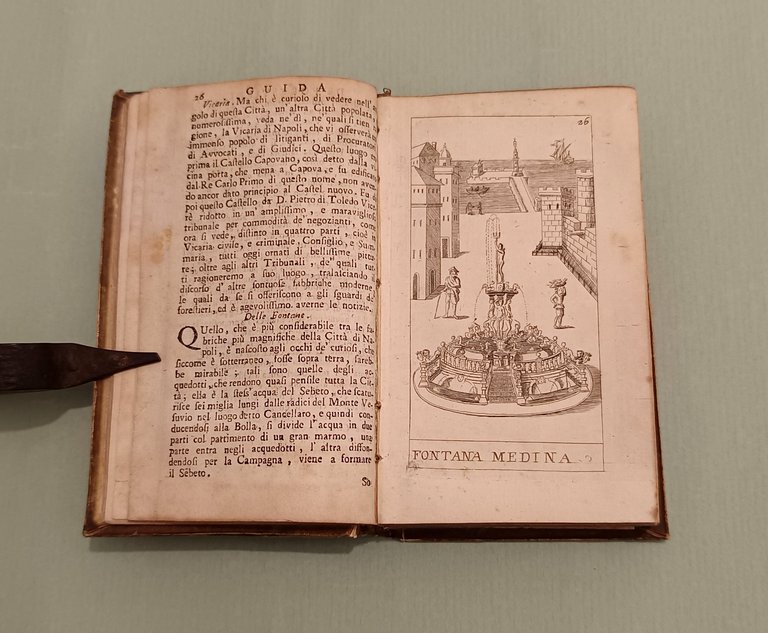 26
GUIDA
Vicaria. Ma chi è curioso di vedere nell'an-
golo di questa Città, un'altra Città popolata, e
numerosissima, veda ne' dì, ne' quali si tien ra-
gione, la Vicaria di Napoli, che vi osserverà un
immenso popolo di litiganti, di Procuratori
di Avvocati, e di Giudici. Questo luogo era
prima il Castello Capovano, così detto dalla vi-
cina porta, che mena a Capova, e fu edificato
dal Re Carlo Primo di questo nome, non aven-
do ancor dato principio al Castel nuovo. Fu di
poi questo Castello da D. Pietro di Toledo Vice-
rè ridotto in un'amplissimo, e maraviglioso
tribunale per commodità de' negozianti, come
ora si vede, distinto in quattro parti, cioè in
Vicaria civile, e criminale, Consiglio, e Sum-
maria, tutti oggi ornati di bellissime pittu-
re; oltre agli altri Tribunali, de' quali tut-
ti ragioneremo a suo luogo, tralasciando il
discorso d'altre sontuose fabbriche moderne,
le quali da se si offeriscono a gli sguardi de'
forestieri, ed è agevolissimo averne le notizie.
Delle Fontane.
Quello, che è più considerabile tra le fa-
briche più magnifiche della Città di Na-
poli, è nascosto agli occhi de' curiosi, che
siccome è sotterraneo, fosse sopra terra, sareb-
be mirabile; tali sono quelle degli ac-
quedotti, che rendono quasi pensile tutta la Cit-
tà; ella è la stess'acqua del Sebeto, che scatu-
risce sei miglia lungi dalle radici del Monte Ve-
suvio nel luogo detto Cancellaro, e quindi con-
ducendosi alla Bolla, si divide l'acqua in due
parti col partimento di un gran marmo, una
parte entra negli acquedotti, l'altra diffon-
dendosi per la Campagna, viene a formare
il Sebeto.
So
26
FONTANA MEDINA